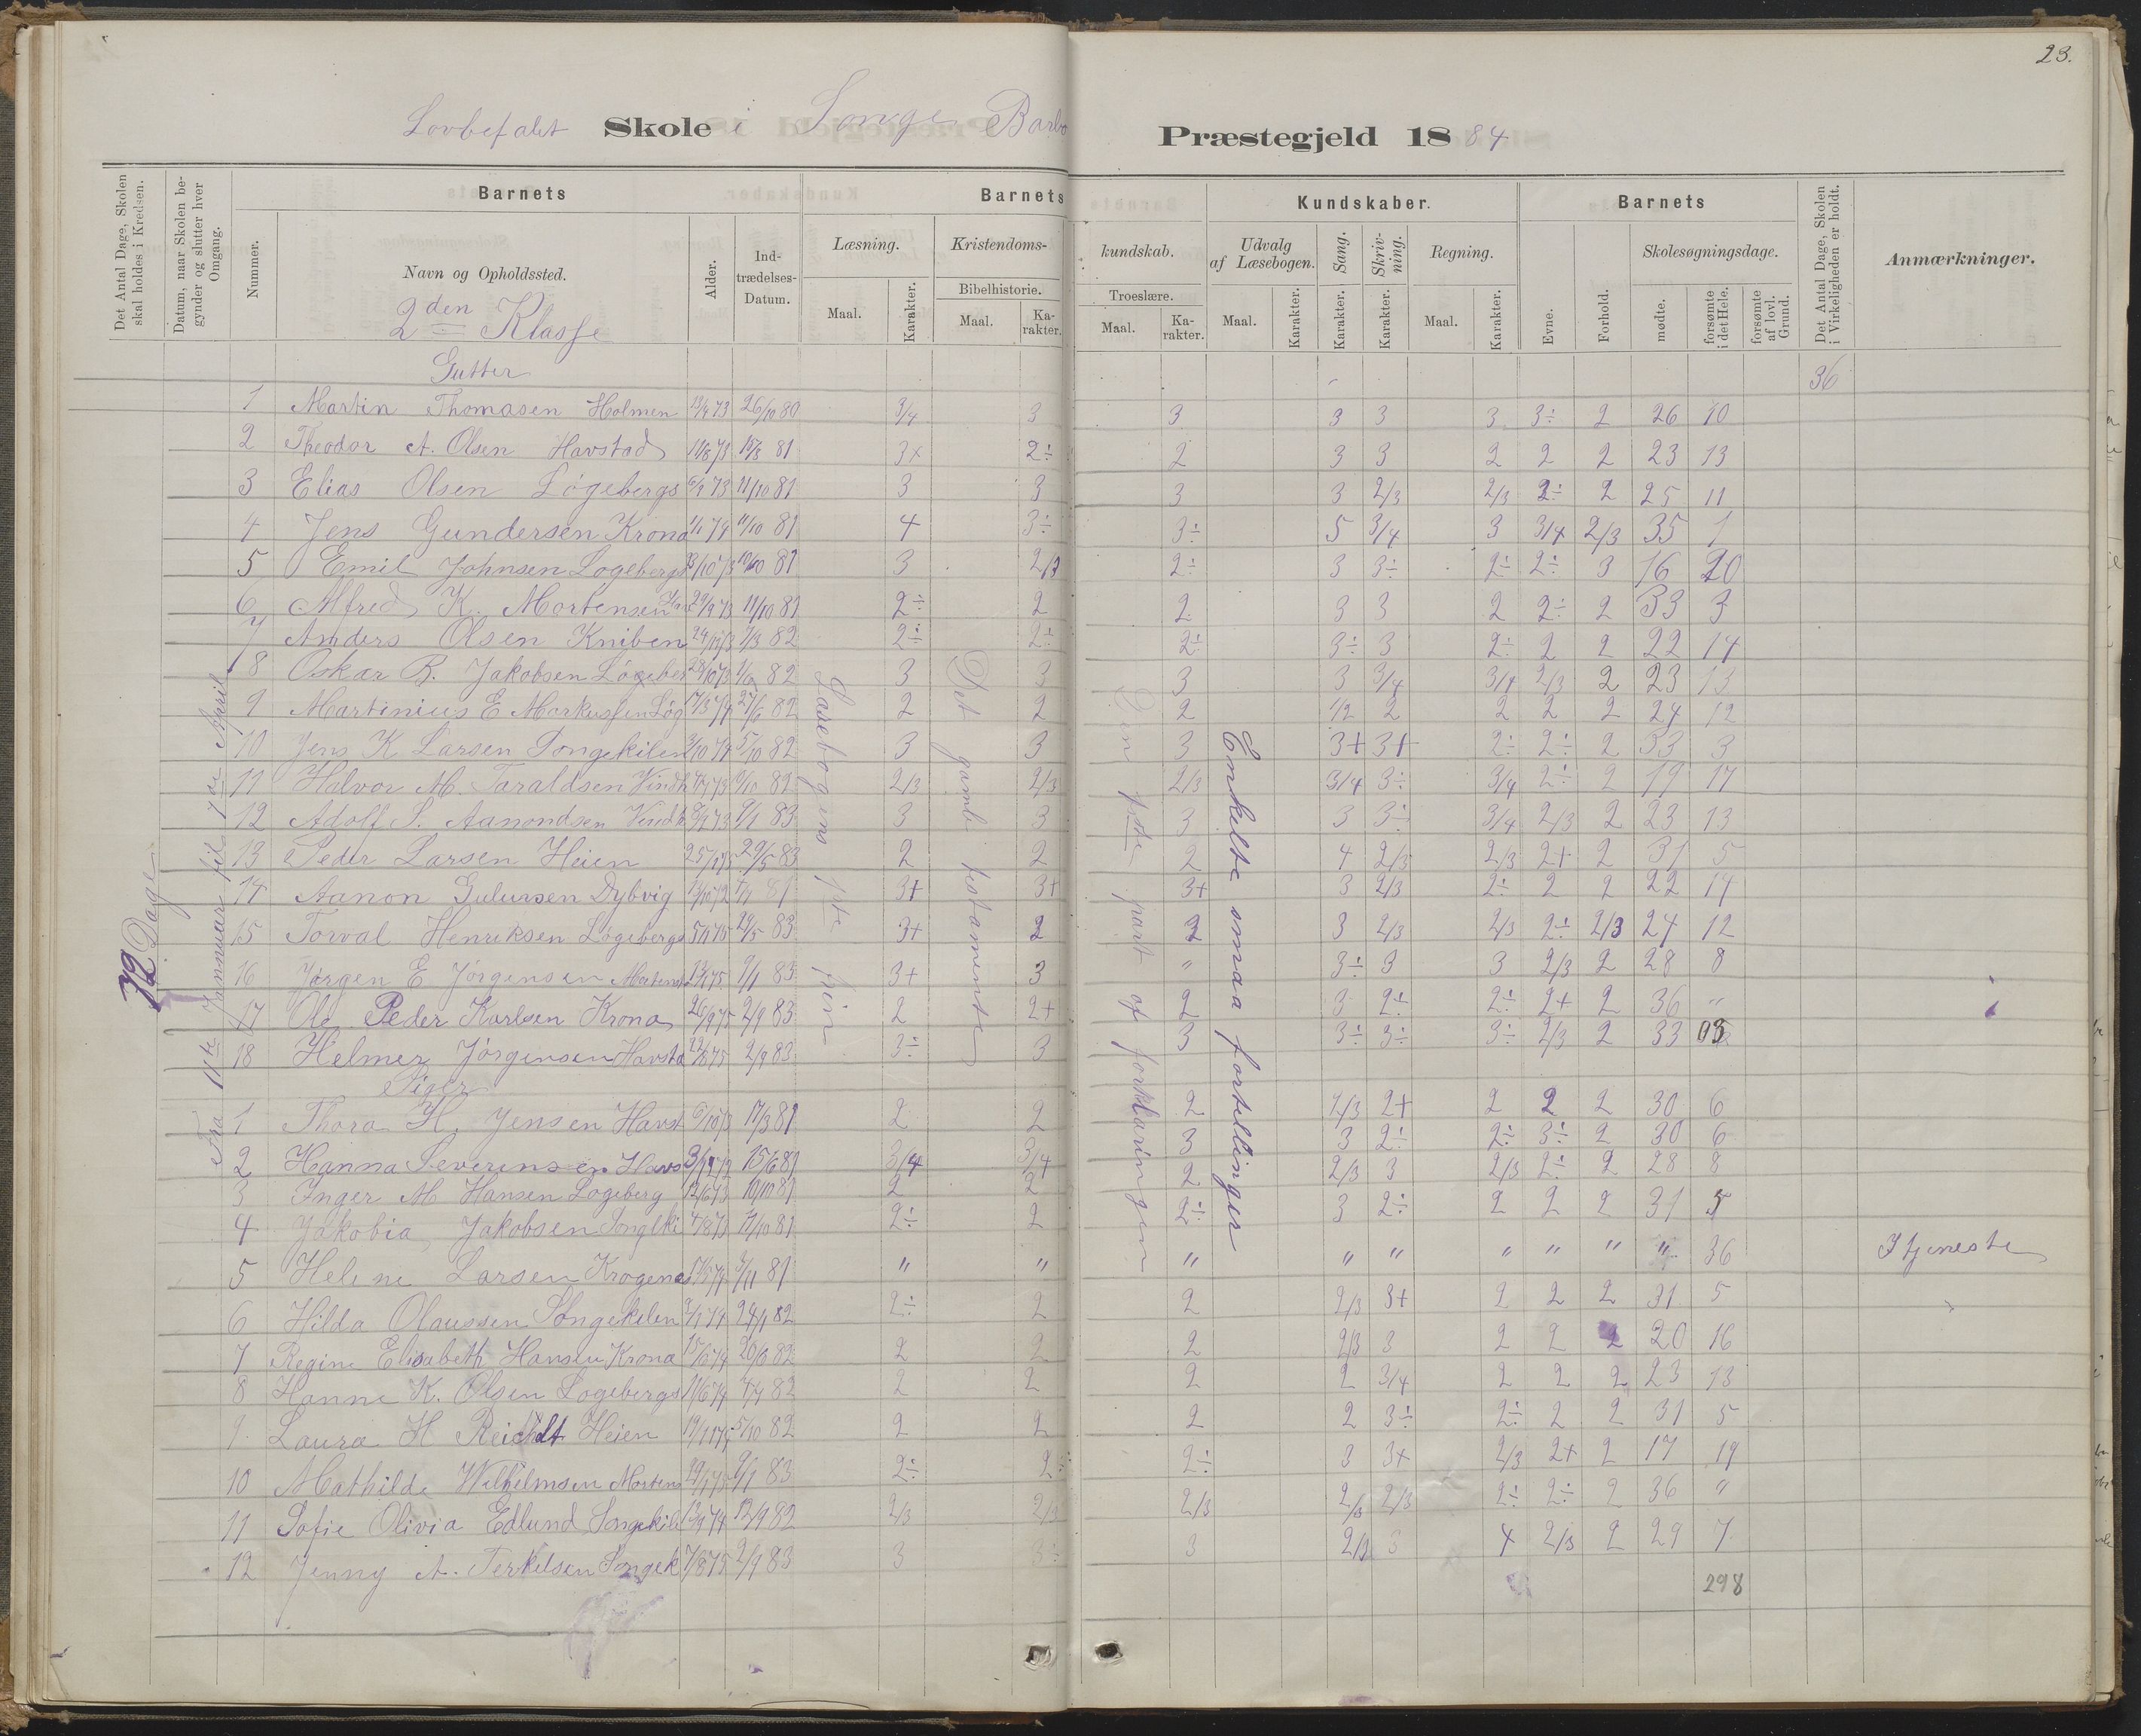 23.
Lovbefalet Skole i Songe Barbo Præstegjeld 1884
Det Antal Dage, Skolen skal holdes i Kredsen.
Datum, naar Skolen begynder og slutter hver Omgang.
Barnets
Nummer.
Navn og Opholdssted.
Alder.
Indtrædelses-Datum.
Barnets Kundskaber.
Læsning.
Maal.
Karakter.
Kristendoms-kundskab.
Bibelhistorie.
Maal.
Karakter.
Troeslære.
Maal.
Karakter.
Udvalg af Læsebogen.
Maal.
Karakter.
Sang.
Karakter.
Skrivning.
Karakter.
Regning.
Maal.
Karakter.
Barnets
Evne.
Forhold.
Skolesøgningsdage.
mødte.
forsømte i det Hele.
forsømte af lovl. Grund.
Det Antal Dage, Skolen i Virkeligheden er holdt.
Anmærkninger.
2den Klasse
Gutter
36
72 Dage
Fra 11te Jannuar til 1ste April
Læsebogens 1ste
Det gamle testamente
Den 1ste part af forklaringen
Enkelte smaa fortellinger
1 Martin Thomasen Holmen 26/10 80 3/4 3 3 3 3 3 3÷ 2 26 10
2 Theodor A. Olsen Havstad 81 3+ 2÷ 2 3 3 2 2 2 23 13
3 Elias Olsen Løgebergs 11/10 81 3 3 3 3 2/3 2/3 2÷ 2 25 11
4 Jens Gundersen Krona 11/10 81 4 3÷ 3÷ 5 3/4 3 3/4 2/3 35 1
5 Emil Johnsen Logebergs 10/10 81 3 2/3 2÷ 3 3÷ 2÷ 2÷ 3 16 20
6 Alfred K. Mortensen 29/9 73 11/10 81 2÷ 2 2 3 3 2 2÷ 2 33 3
7 Anders Olsen Kniben 7/3 82 2÷ 2÷ 2÷ 3÷ 3 2÷ 2 2 22 14
8 Oskar B. Jakobsen Løgeber 28/10 73 82 3 3 3 3 3/4 3/4 2/3 2 23 13
9 Martinius E Markussen Løg 27/6 82 2 2 2 1/2 2 2 2 2 24 12
10 Jens K Larsen Songekilen 5/10 82 3 3 3 3+ 3+ 2÷ 2÷ 2 33 3
11 Halvor M. Taraldsen Vindh 82 2/3 2/3 2/3 3/4 3÷ 3/4 2÷ 2 19 17
12 Adolf S. Aanondsen Vindh 9/1 83 3 3 3 3 3÷ 3/4 2/3 2 23 13
13 Peder Larsen Heien 29/5 83 2 2 2 4 2/3 2/3 2+ 2 31 5
14 Aanon Gulursen Dybvig 81 3+ 3+ 3+ 3 2/3 2÷ 2 2 22 14
15 Torval Henriksen Løgebergs 29/5 83 3+ 2 2 3 2/3 2/3 2÷ 2/3 24 12
16 Jørgen E Jørgensen Martens 9/1 83 3+ 3 " 3÷ 3 3 2/3 2 28 8
17 Ole Peder Karlsen Krona 26/9 75 2/9 83 2 2+ 2 3 2÷ 2÷ 2+ 2 36 "
18 Helmer Jørgensen Havsta 2/9 83 3÷ 3 3 3÷ 3÷ 3÷ 2/3 2 33 03
Piger
1 Thora H. Jensen Havst 6/10 73 17/3 81 2 2 2 2/3 2+ 2 2 2 30 6
2 Hanna Severinsen Havs 15/6 81 3/4 3/4 3 3 2÷ 2÷ 3÷ 2 30 6
3 Inger M Hansen Logeberg 12/6 73 10/10 81 2 2 2 2/3 3 2/3 2÷ 2 28 8
4 Jakobia Jakobsen Songeki 4/8 73 11/10 81 2÷ 2 2÷ 3 2÷ 2 2 2 31 5
5 Helene Larsen Krogenes 3/11 81 " " " " " " " " " 36 I tjeneste
6 Hilda Olaussen Songekilen 24/1 82 2÷ 2 2 2/3 3+ 2 2 2 31 5
7 Regine Elisabeth Hansen Krona 20/3 82 2 2 2 2/3 3 2 2 2 20 16
8 Hanne K. Olsen Logebergs 82 2 2 2 2 3/4 2 2 2 23 13
9. Laura H Reichelt Heien 5/10 82 2 2 2 2 3÷ 2÷ 2 2 31 5
10 Mathilde Wilhelmsen Martens 9/1 83 2÷ 2÷ 2÷ 3 3+ 2/3 2+ 2 17 19
11 Sofie Olivia Edlund Songekile 12/9 82 2/3 2/3 2/3 2/3 2/3 2÷ 2÷ 2 36 "
12 Jenny A. Terkelsen Songek 7/8 75 2/9 83 3 3÷ 3 2/3 3 4 2/3 2 29 7
298